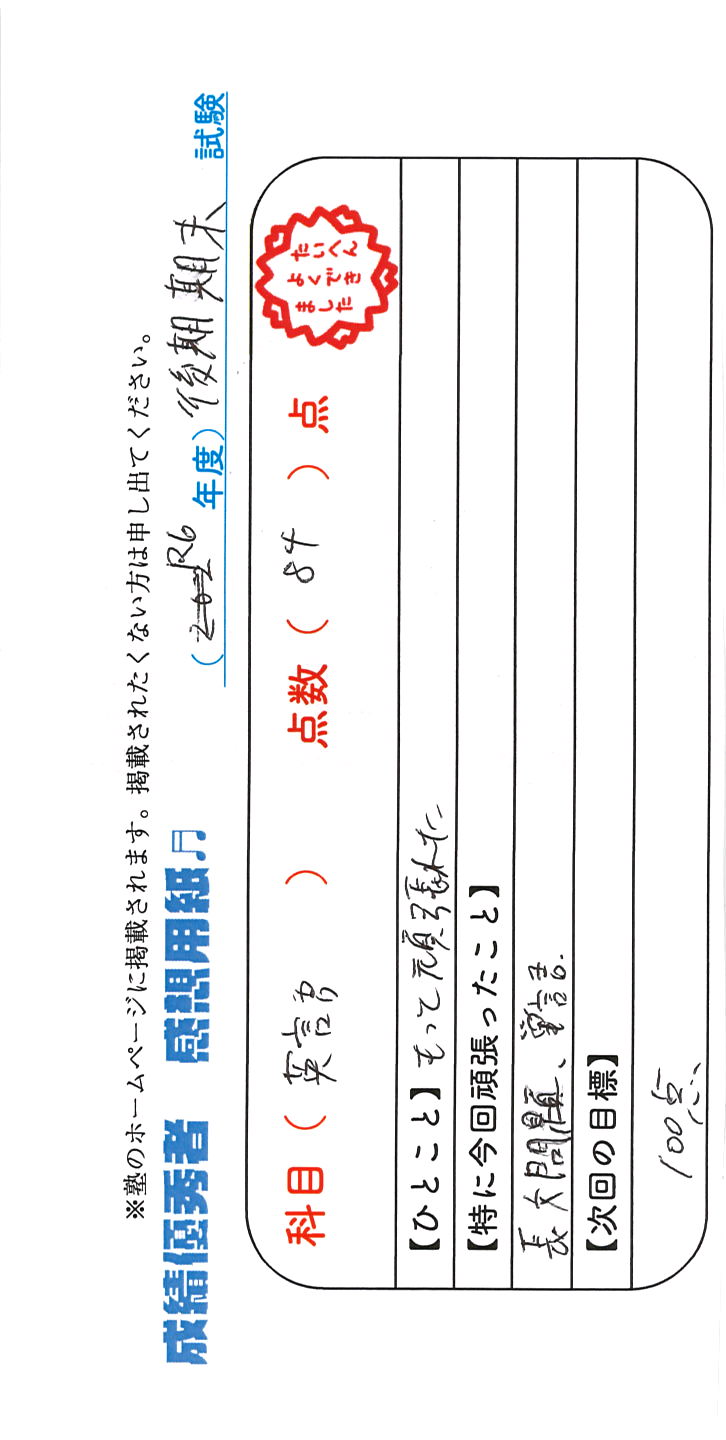 ※塾のホームページに掲載されます。掲載されたくない方は申し出てください。
成績優秀者 感想用紙♬ (R6 年度) 後期期末 試験
科目 ( 英語 ) 点数 ( 84 ) 点
たいへん
よくでき
ました
【ひとこと】もって頑張れた
【特に今回頑張ったこと】
長文問題、単語.
【次回の目標】
100点